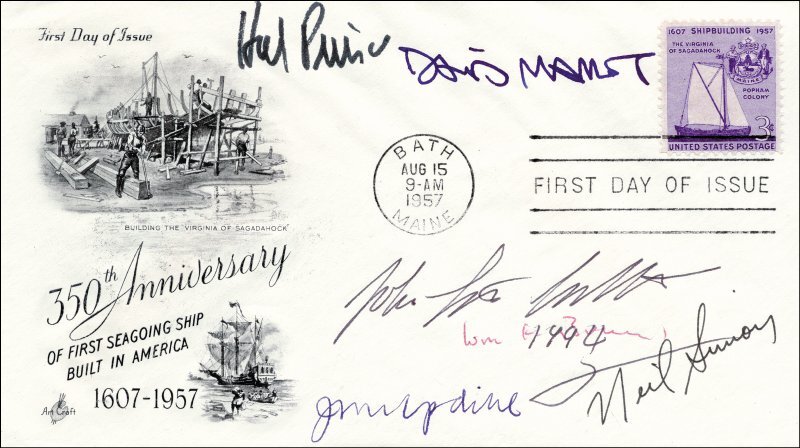 First Day of Issue
Hal Prince
DAVID MAMET
1607 SHIPBUILDING 1957
THE VIRGINIA OF SAGADAHOCK
MAINE
POPHAM COLONY
3¢
UNITED STATES POSTAGE
BATH
AUG 15
9-AM
1957
MAINE
FIRST DAY OF ISSUE
BUILDING THE "VIRGINIA OF SAGADAHOCK"
350th Anniversary
OF FIRST SEAGOING SHIP
BUILT IN AMERICA
1607-1957
Art Craft
John
1994
Neil Simon
John Updike